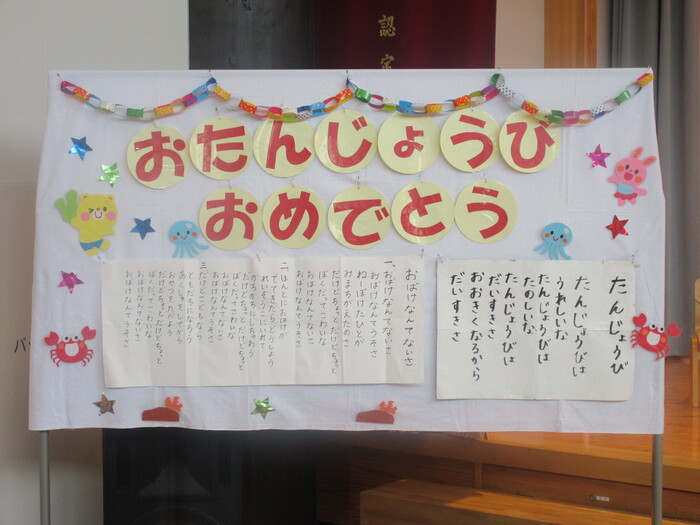 認定
おたんじょうひ
おめでとう
たんじょうび
たんじょうびは
うれしいな
たんじょうびは
たのしいな
たんじょうびは
だいすきさ
おおきくなるから
だいすきさ
おばけなんてないさ
一、おばけなんてないさ
おばけなんてうそさ
ねーぼけたひとが
みまちがえたのさ
だけどちょっと だけどちょっと
ぼくだってこわいな
おばけなんてないさ
おばけなんてうそさ
二、ほんとにおばけが
でてきたらどうしよう
れいぞうこにいれて
かちかちにしちゃおう
だけどちょっと だけどちょっと
ぼくだってこわいな
おばけなんてないさ
おばけなんてうそさ
三、だけどこどもなら
ともだちになろう
あくしゅをしてから
おやつをたべよう
だけどちょっと だけどちょっと
ぼくだってこわいな
おばけなんてないさ
おばけなんてうそさ